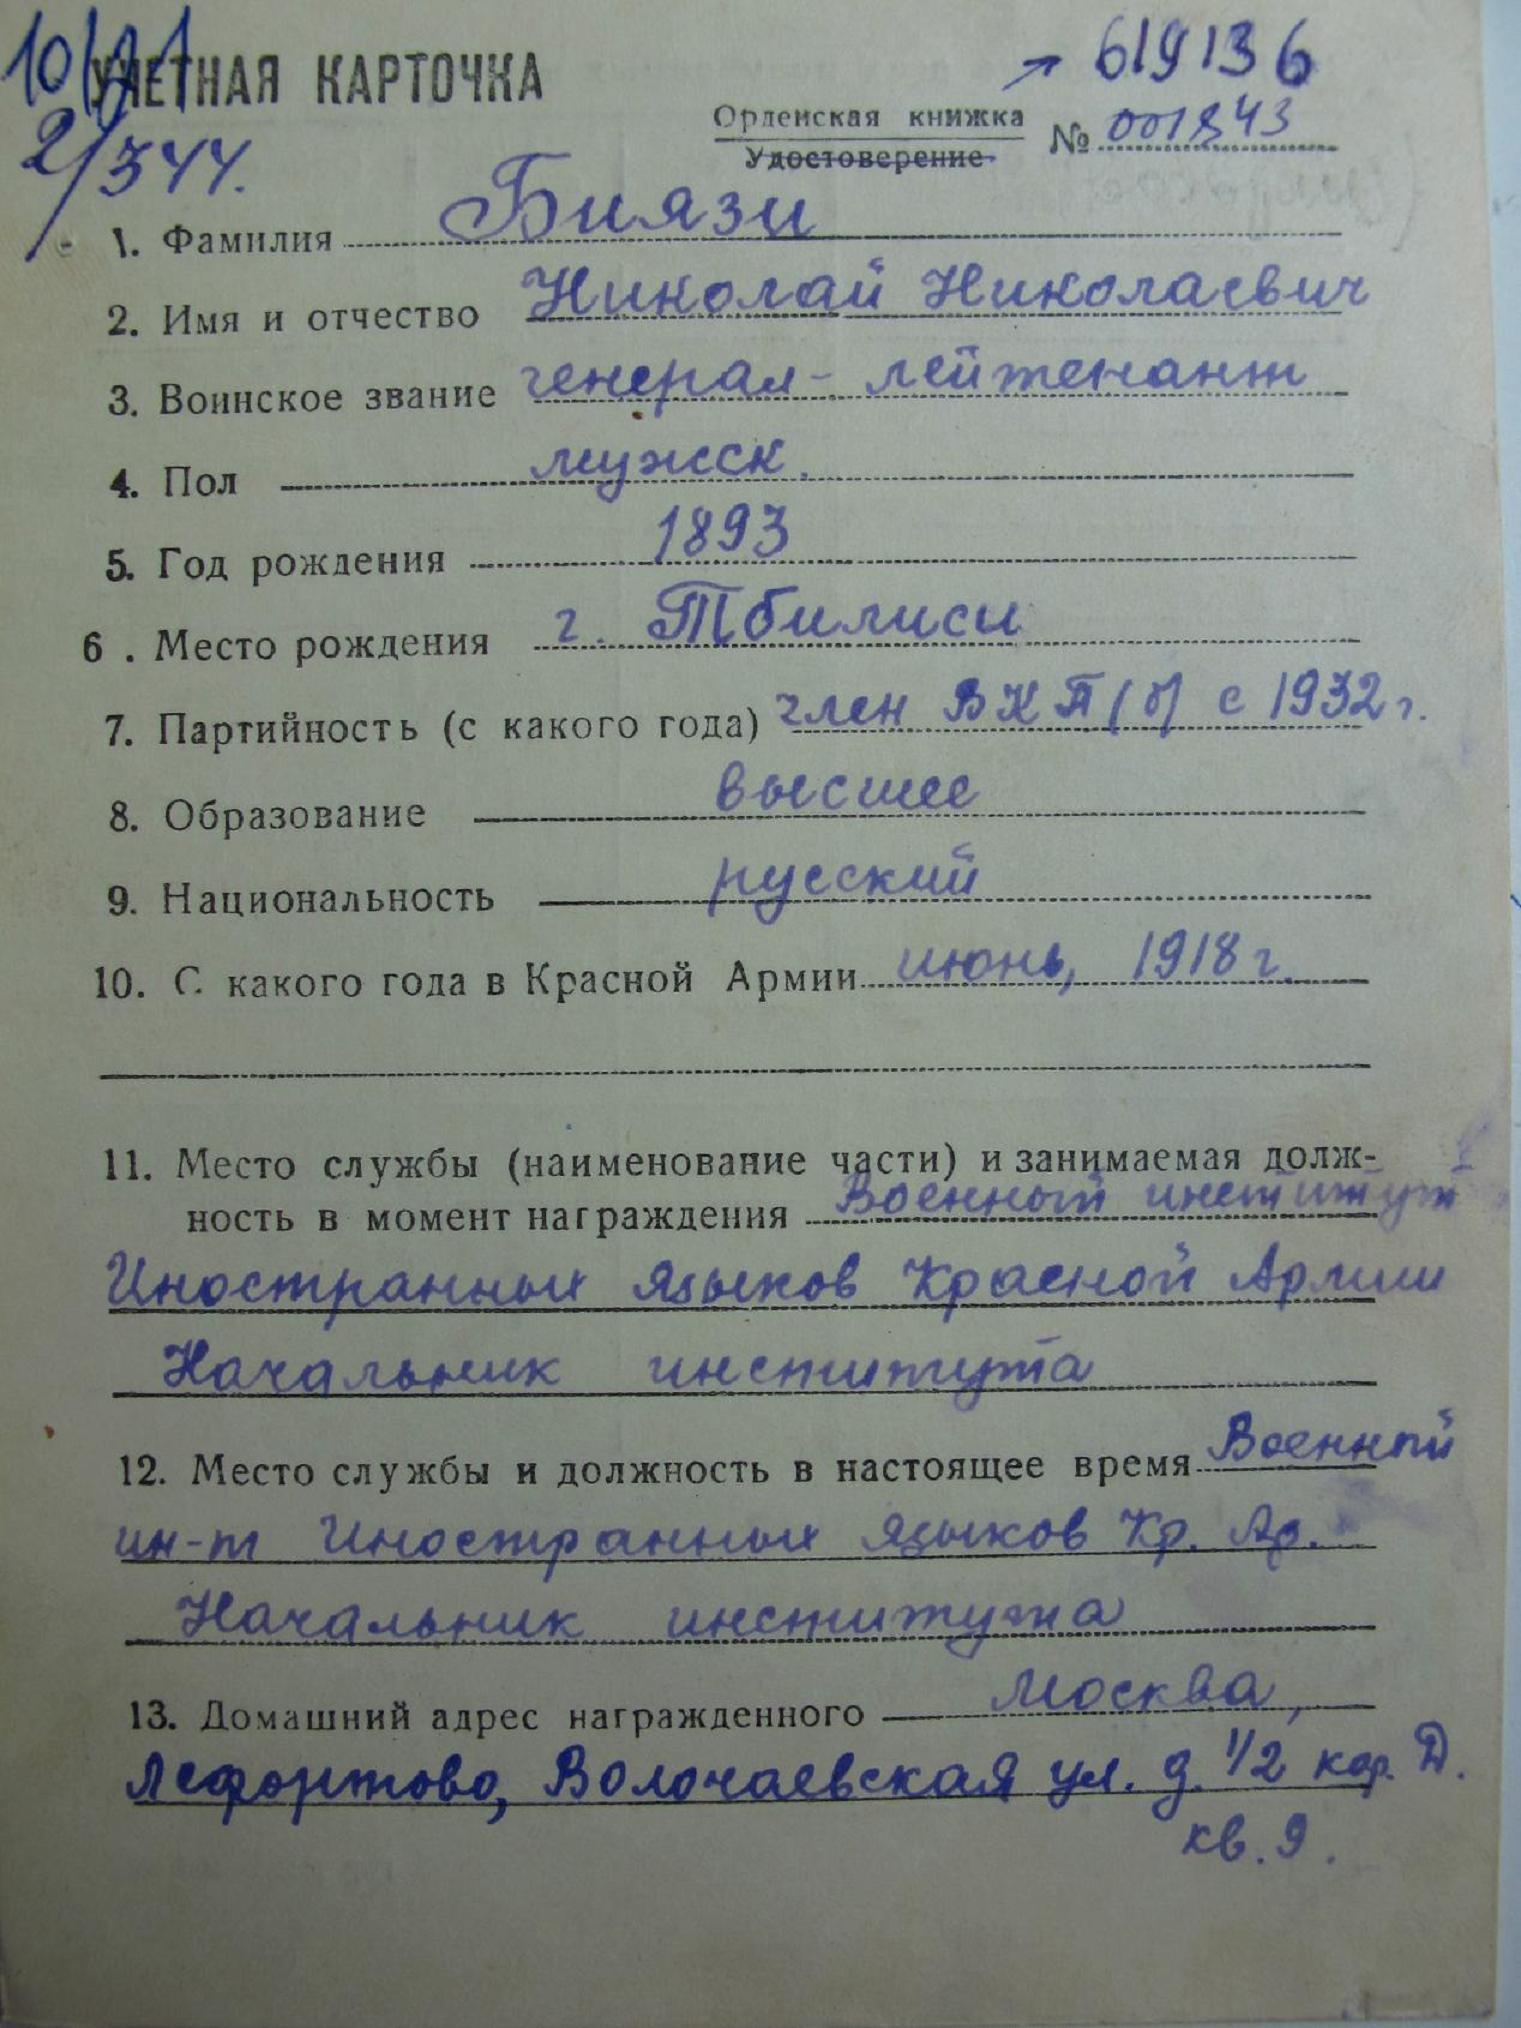 УЧЕТНАЯ КАРТОЧКА
619136
2/344.
Орденская книжка
Удостоверение
№ 001843
1. Фамилия Биязи
2. Имя и отчество Николай Николаевич
3. Воинское звание генерал-лейтенант
4. Пол мужск.
5. Год рождения 1893
6. Место рождения г. Тбилиси
7. Партийность (с какого года) член ВКП(б) с 1932 г.
8. Образование высшее
9. Национальность русский
10. С какого года в Красной Армии июнь, 1918 г.
11. Место службы (наименование части) и занимаемая долж-
ность в момент награждения Военный институт
Иностранных языков Красной Армии
Начальник института
12. Место службы и должность в настоящее время Военный
ин-т Иностранных языков Кр. Ар.
Начальник института
13. Домашний адрес награжденного Москва,
Лефортово, Волочаевская ул. д. 1/2 кор. Д.
кв. 9.